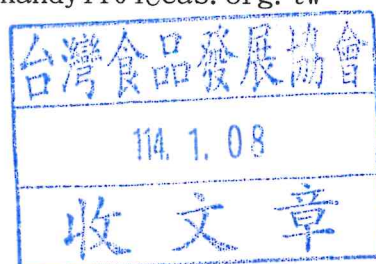 台灣食品發展協會
114. 1. 08
收文章